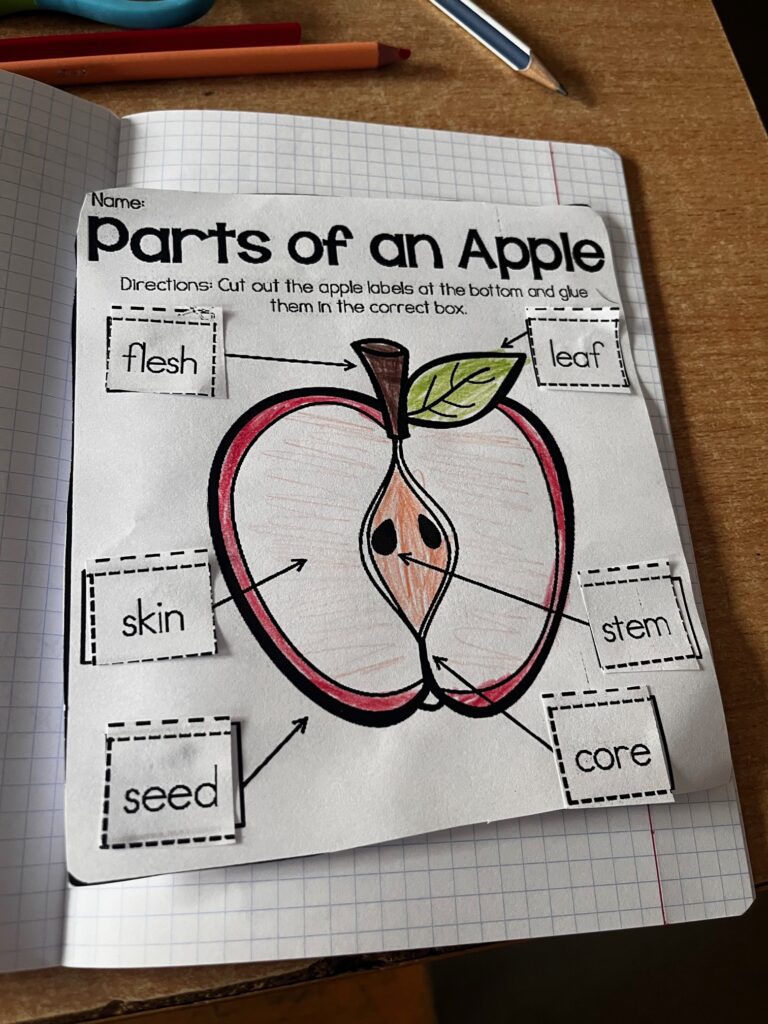 Name:
Parts of an Apple
Directions: Cut out the apple labels at the bottom and glue
them in the correct box.
flesh
leaf
skin
stem
seed
core